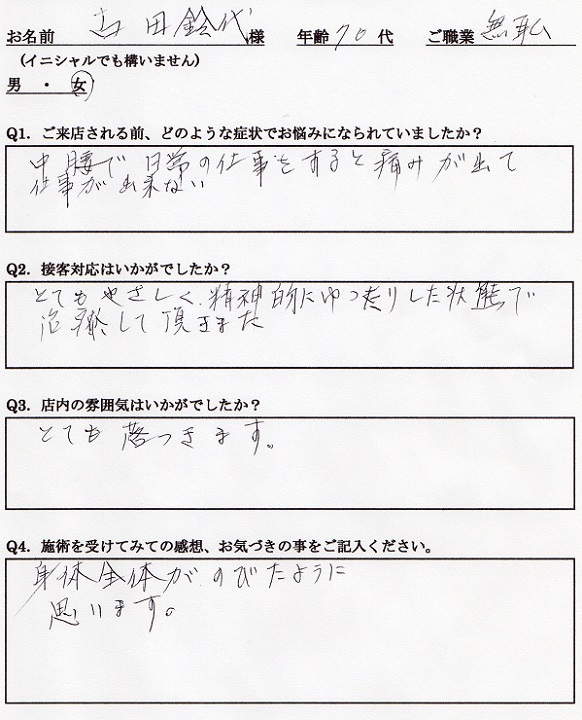 お名前 吉田鈴代 様 年齢 70 代 ご職業 無職
（イニシャルでも構いません）
男 ・ 女
Q1．ご来店される前、どのような症状でお悩みになられていましたか？
中腰で日常の仕事をすると痛みが出て
仕事が出来ない
Q2．接客対応はいかがでしたか？
とてもやさしく、精神的にゆったりした状態で
治療して頂きまた
Q3．店内の雰囲気はいかがでしたか？
とても落つきます。
Q4．施術を受けてみての感想、お気づきの事をご記入ください。
身体全体がのびたように
思います。